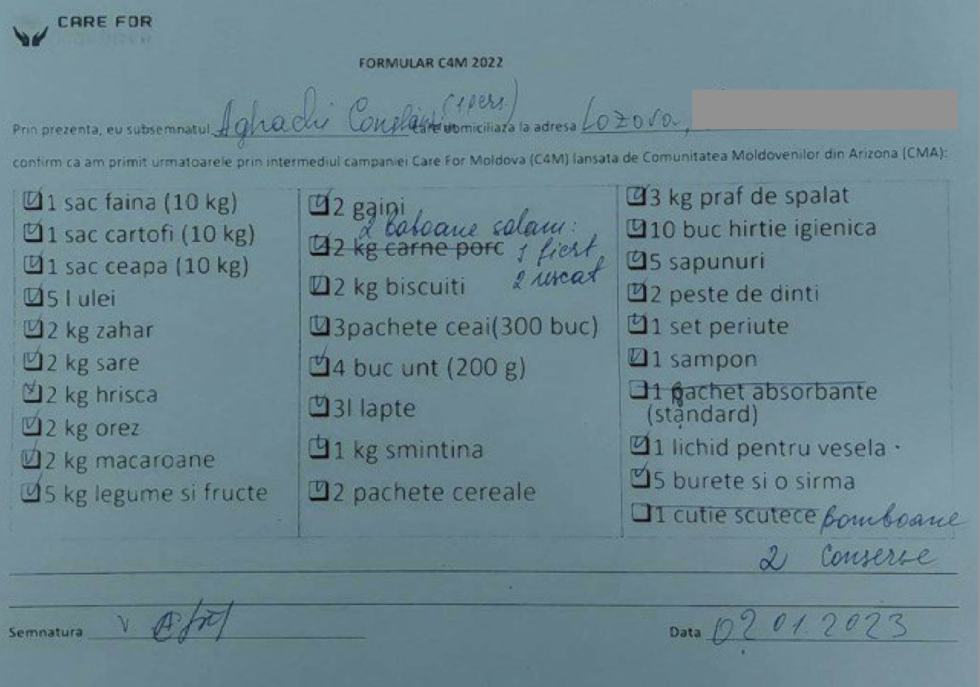 CARE FOR
FORMULAR C4M 2022
Prin prezenta, eu subsemnatul Aghachi Constantin (1 pers.) care domiciliaza la adresa Lozova,
confirm ca am primit urmatoarele prin intermediul campaniei Care For Moldova (C4M) lansata de Comunitatea Moldovenilor din Arizona (CMA):
1 sac faina (10 kg)
1 sac cartofi (10 kg)
1 sac ceapa (10 kg)
5 l ulei
2 kg zahar
2 kg sare
2 kg hrisca
2 kg orez
2 kg macaroane
5 kg legume si fructe
2 gaini
2 batoane salam:
2 kg carne porc 1 fiert
2 uscat
2 kg biscuiti
3pachete ceai(300 buc)
4 buc unt (200 g)
3l lapte
1 kg smintina
2 pachete cereale
3 kg praf de spalat
10 buc hirtie igienica
5 sapunuri
2 peste de dinti
1 set periute
1 sampon
1 pachet absorbante
(standard)
1 lichid pentru vesela
5 burete si o sirma
1 cutie scutece bomboane
2 conserve
Semnatura
Data 02.01.2023